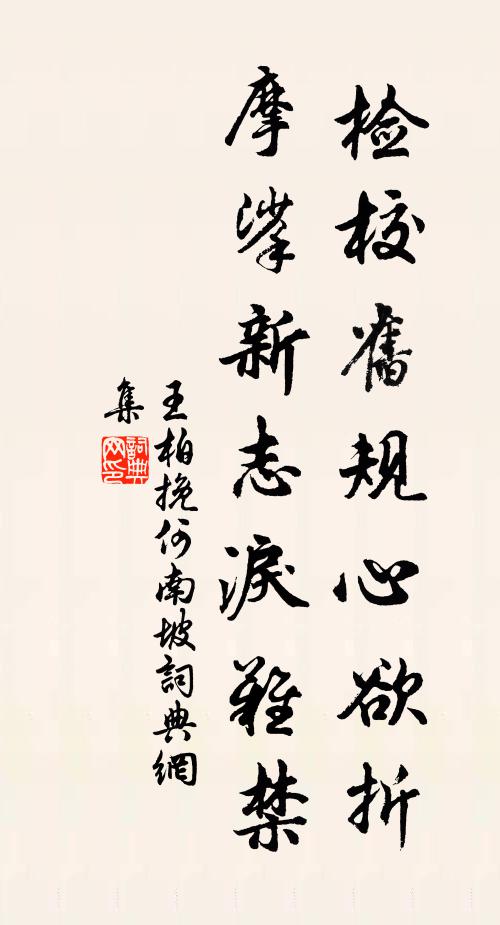 检校舊规心欲折
摩挲新志淚難禁
王柏挽何南坡詞典網
集
詞典
网印